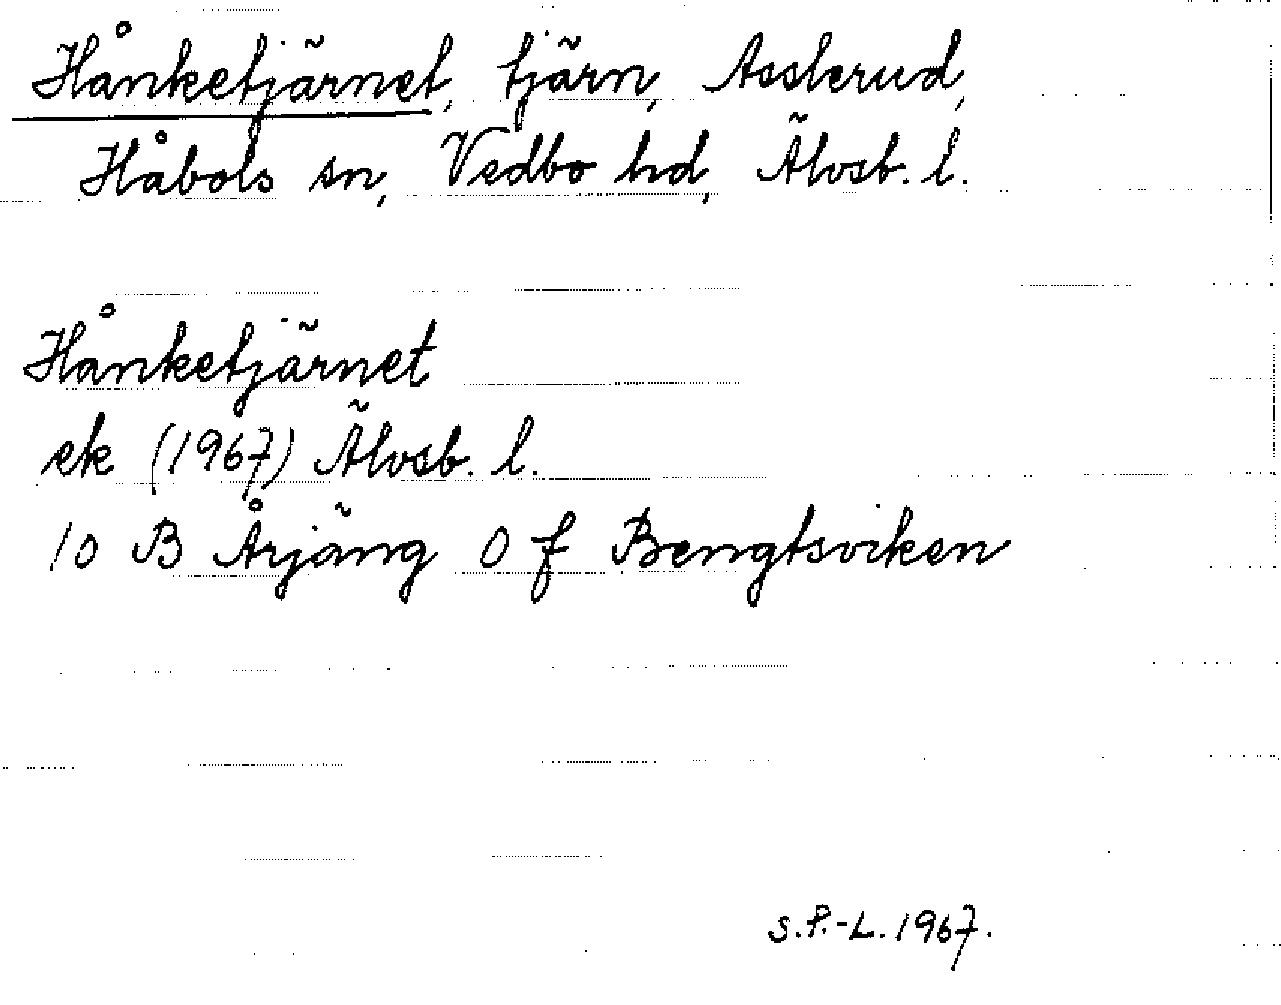 Hånketjärnet, tjärn, Asslerud,
Håbols sn, Vedbo hd, Älvsb. l.
Hånketjärnet
ek (1967) Älvsb. l.
10 B Årjäng 0 f Bengtsviken
S.P.-L. 1967.